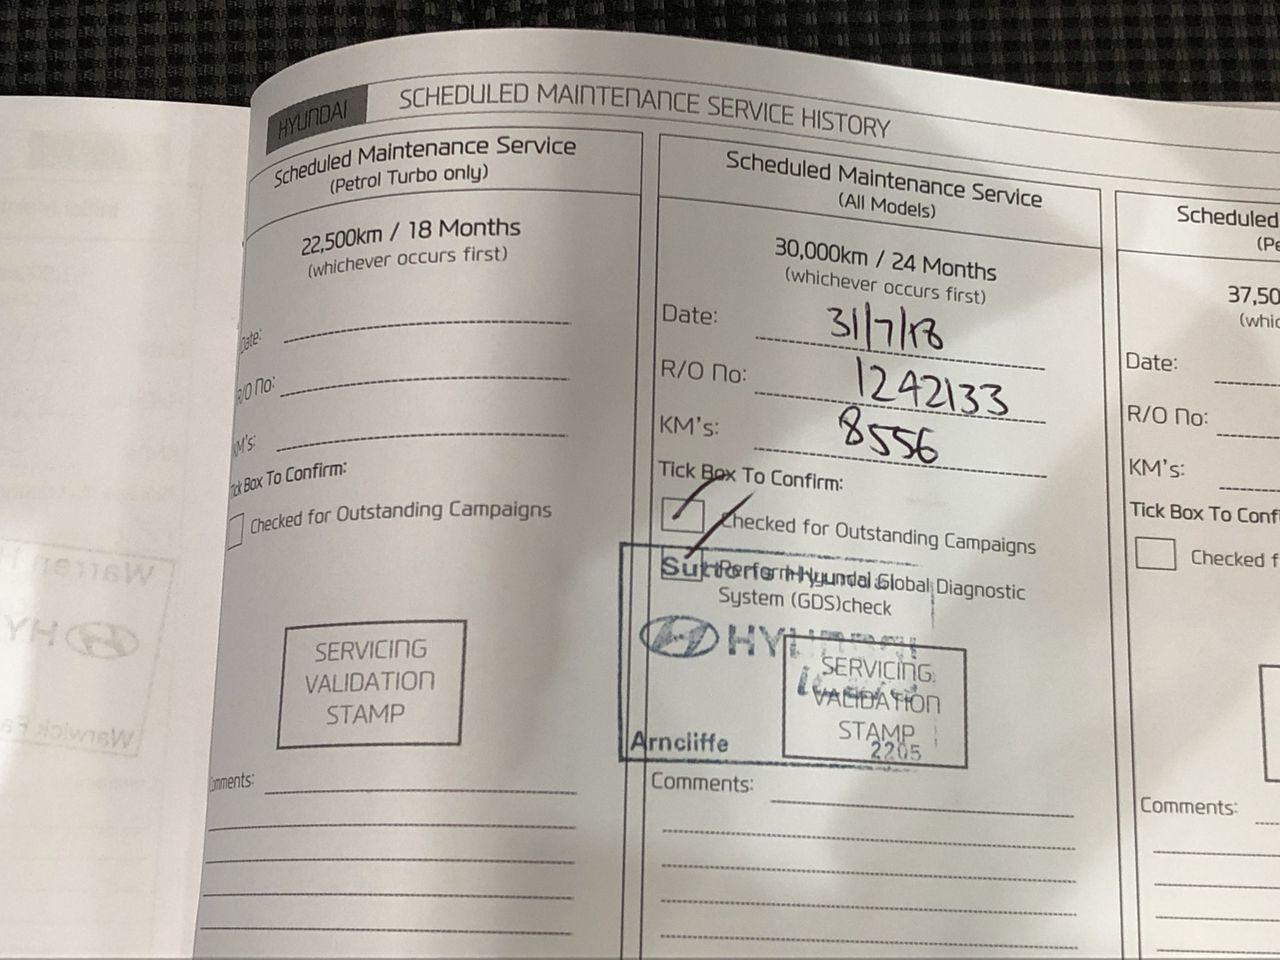 HYUNDAI
SCHEDULED MAINTENANCE SERVICE HISTORY
Scheduled Maintenance Service
(Petrol Turbo only)
22,500km / 18 Months
(whichever occurs first)
Date:
R/O No:
KM's:
Tick Box To Confirm:
Checked for Outstanding Campaigns
SERVICING
VALIDATION
STAMP
Comments:
Scheduled Maintenance Service
(All Models)
30,000km / 24 Months
(whichever occurs first)
Date: 31/7/18
R/O No: 1242133
KM's: 8556
Tick Box To Confirm:
Checked for Outstanding Campaigns
Perform Hyundai Global Diagnostic
System (GDS)check
Suttons Hyundai
HYUNDAI
SERVICING
VALIDATION
STAMP
Arncliffe 2205
Comments:
Scheduled
(Pe
37,50
(whic
Date:
R/O No:
KM's:
Tick Box To Conf
Checked f
Comments: